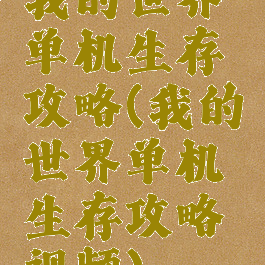 我的世界
单机生存
攻略(我的
世界单机
生存攻略
视频)